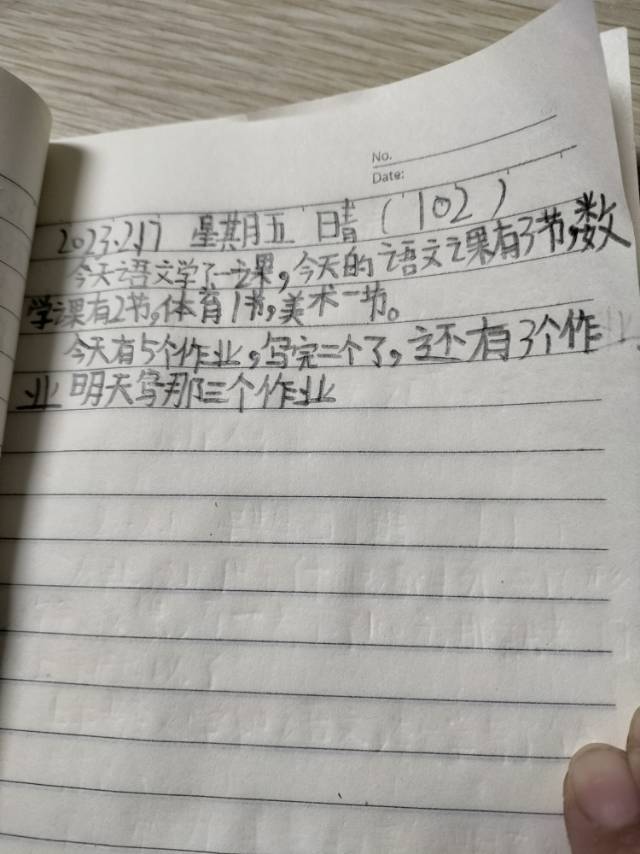 No.
Date:
2023.2.17 星期五 晴(102)
今天语文学了一课,今天的语文课有3节,数
学课有2节,体育1节,美术一节。
今天有5个作业,写完二个了,还有3个作
业明天写那三个作业